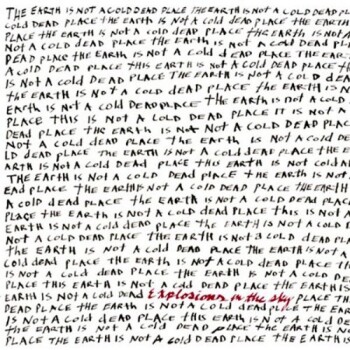 THE EARTH IS NOT A COLD DEAD PLACE THE EARTH IS NOT A COLD DEAD PL
ACE THE EARTH IS NOT A COLD DEAD PLACE THE EARTH
PLACE THE EARTH IS NOT A COLD DEAD PLACE THE EARTH IS
NOT A COLD DEAD PLACE THE EARTH IS NOT A COLD DEAD PL
DEAD PLACE THE EARTH IS NOT A COLD DEAD PLACE THE EAR
A COLD DEAD PLACE THIS EARTH IS NOT A COLD DEAD PLACE
IS NOT A COLD DEAD PLACE THE EARTH IS NOT A COLD DEA
THE EARTH IS NOT A COLD DEAD PLACE THE EARTH IS NOT
EARTH IS NOT A COLD DEAD PLACE THE EARTH IS NOT A COLD D
PLACE THIS IS NOT A COLD DEAD PLACE IT IS NOT A
DEAD PLACE THE EARTH IS NOT A COLD DEAD PLAC
NOT A COLD DEAD PLACE THE EARTH IS NOT A COLD DE
LD DEAD PLACE THE EARTH IS NOT A COLD DEAD PLACE THE E
ARTH IS NOT A COLD DEAD PLACE THIS EARTH IS NOT COLD
THE EARTH IS NOT A COLD DEAD PLACE THE EARTH IS NOT
EAD PLACE THE EARTH IS NOT A COLD DEAD PLACE THE EARTH
A COLD DEAD PLACE THE EARTH IS NOT A COLD DEAD PLACE
PLACE THE EARTH IS NOT A COLD DEAD PLACE THIS IS NOT A
EARTH IS NOT A COLD DEAD PLACE THE EARTH IS NOT A COLD
NOT A COLD DEAD PLACE THE EARTH IS NOT A COLD DEAD PL
THE EARTH IS NOT A COLD DEAD PLACE THE EARTH IS NOT A
COLD DEAD PLACE THE EARTH IS NOT A COLD DEAD PLACE THE
IS NOT A COLD DEAD PLACE THE EARTH IS NOT A COLD DE
PLACE THIS EARTH IS NOT A COLD DEAD PLACE THE EARTH IS
EARTH IS NOT A COLD DEAD Explosions in the sky PLACE THE
DEAD PLACE THE EARTH IS NOT A COLD DEAD PLACE THE EAR
IS NOT A COLD DEAD PLACE THIS EARTH IS NOT A COLD D
THE EARTH IS NOT A COLD DEAD PLACE THE EARTH IS NOT
PLACE THE EARTH IS NOT A COLD DEAD PLACE THE EARTH IS